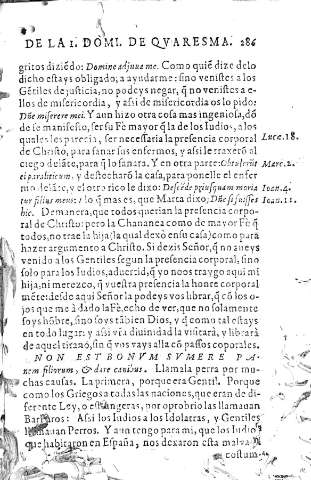 DE LA I. DOMI. DE QVARESMA. 286
gritos diziẽdo: Domine adjuua me. Como quiẽ dize de lo
dicho estays obligado, a ayudarme: sino venistes a los
Gẽtiles de justicia, no podeys negar, q̃ no venistes a e-
llos de misericordia, y assi de misericordia os lo pido:
Dñe miserere mei. Y aun hizo otra cosa mas ingeniosa, dõ
de se manifesto, ser su Fè mayor q̃ la de los Iudios, a los
quales les parecia, ser necessaria la presencia corporal
de Christo, para sanar sus enfermos, y assi le traxerõ al
ciego delãte, para q̃ lo sanara. Y en otra parte:
et paraliticum. y destecharõ la casa, para ponelle el enfer
mo delãte, y el otro rico le dixo: Descẽde priusquam moria
tur filius meus: lo q̃ mas es, que Marta dixo: Dñe si fuisses
hic. Demanera, que todos querian la presencia corpo-
ral de Christo: pero la Chananea como de mayor Fè q̃
todos, no trae la hija (la qual dexò en su casa) como para
hazer argumento a Christo. Si dezis Señor, q̃ no aueys
venido a los Gentiles segun la presencia corporal, sino
solo para los Iudios, aduertid, q̃ yo no os traygo aqui mi
hija, ni merezco, q̃ vuestra presencia la honre corporal
mẽte: desde aqui Señor la podeys vos librar, q̃ cõ los o-
jos que me à dado la Fè, echo de ver, que no solamente
soys hõbre, sino soys tãbien Dios, y q̃ como tal estays
en todo lugar: y assi vr̃a diuinidad la visitarà, y librarà
de aquel tirano, sin q̃ vos vays alla cõ passos corporales.
NON EST BONVM SVMERE PA-
nem filiorum, & dare canibus. Llamala perra por mu-
chas causas. La primera, porque era Gentil. Porque
como los Griegos a todas las naciones, que eran de di-
ferente Ley, o estrangeras, por oprobrio las llamauan
Barbaros: Assi los Iudios a los Idolatras, y Gentiles
llamauan Perros. Y aun tengo para mi, que los Iudios
que habitaron en España, nos dexaron esta mala
costum-
Luce. 18.
Marc. 2.
Ioan. 4.
Ioan. 11.